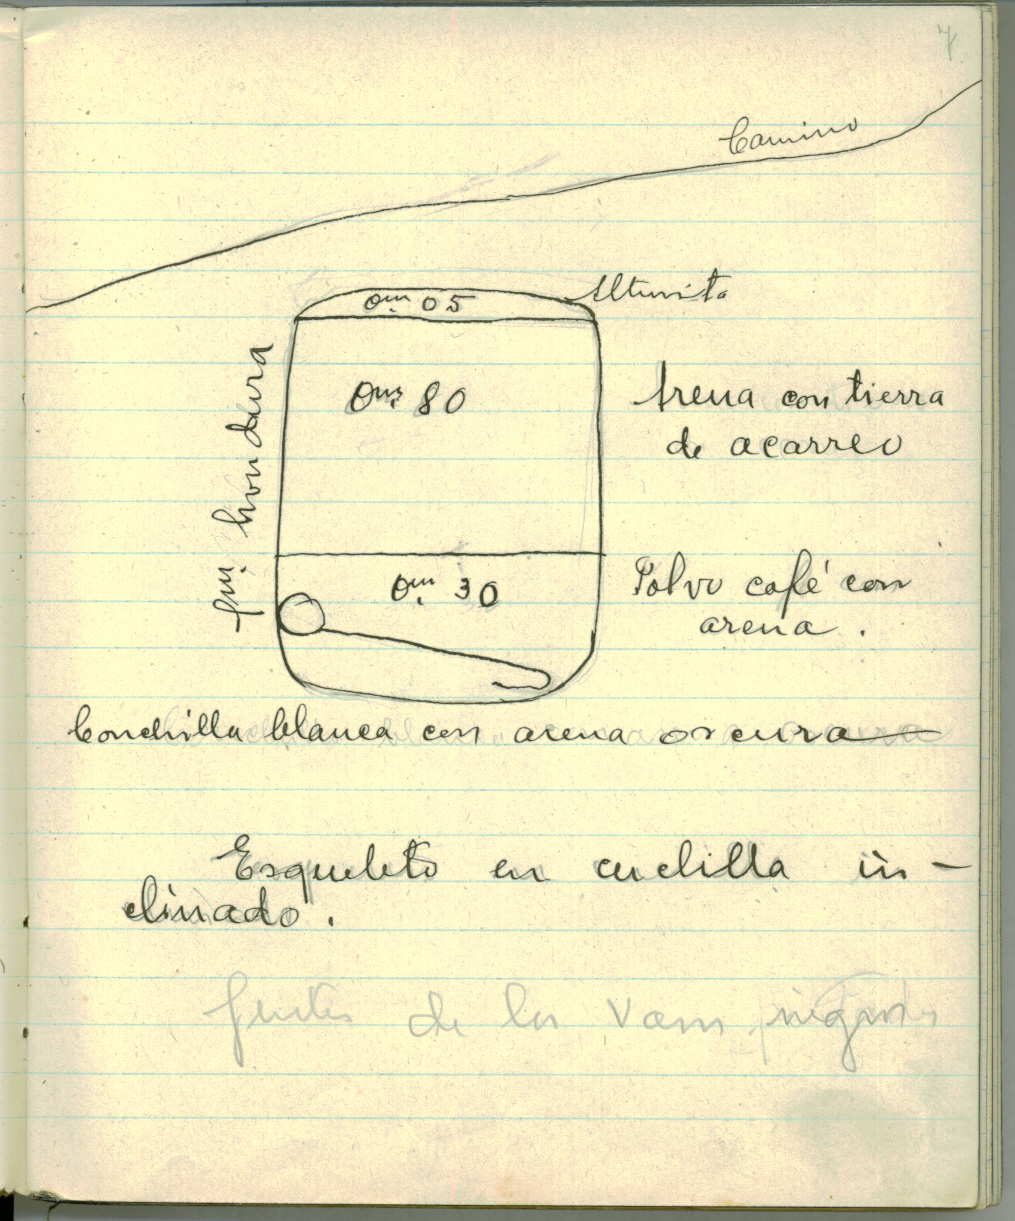 7
Camino
Alturita
0m. 05
0m. 80
Arena con tierra
de acarreo
hondura
0m. 30
Polvo café con
arena.
Conchilla blanca con arena oscura
Esqueleto en cuclilla in-
clinado.
de los vasos